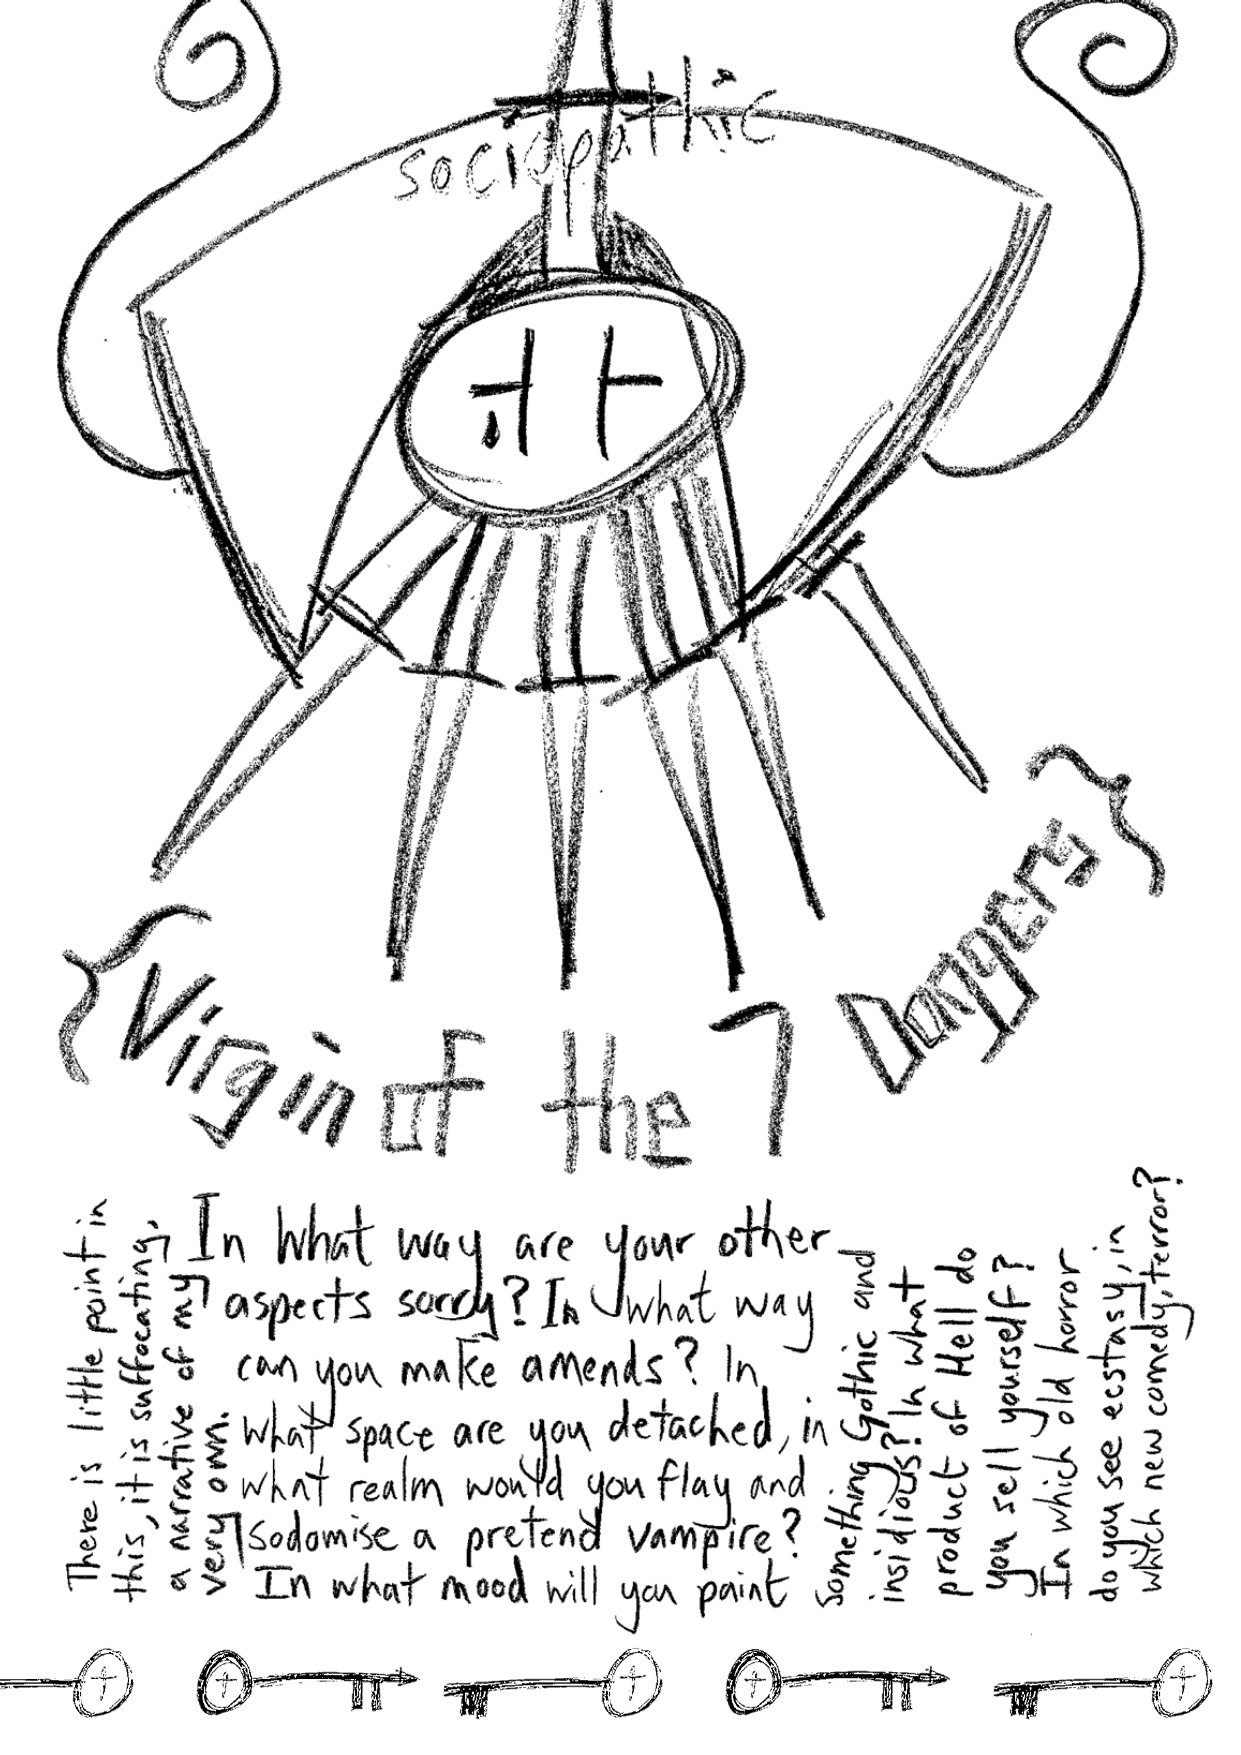 sociopathic
{Virgin of the 7 Daggers}
There is little point in
this, it is suffocating,
a narrative of my
very own.
In what way are your other
aspects sorry? In what way
can you make amends? In
what space are you detached, in
what realm would you flay and
sodomise a pretend vampire?
In what mood will you paint
something Gothic and
insidious? In what
product of Hell do
you sell yourself?
In which old horror
do you see ecstasy, in
which new comedy, terror?